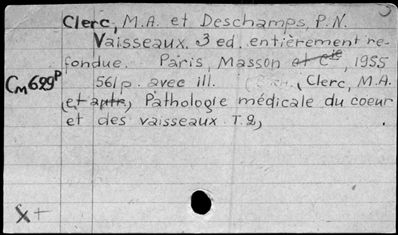 Clerc, M.A. et Deschamps, P.N.
Vaisseaux. 3 ed. entièrement re-
fondue. Paris, Masson et cie, 1955
Cm629P 561p. avec ill. , Clerc, M.A.
et autr., Pathologie médicale du coeur
et des vaisseaux. T.2,
X+